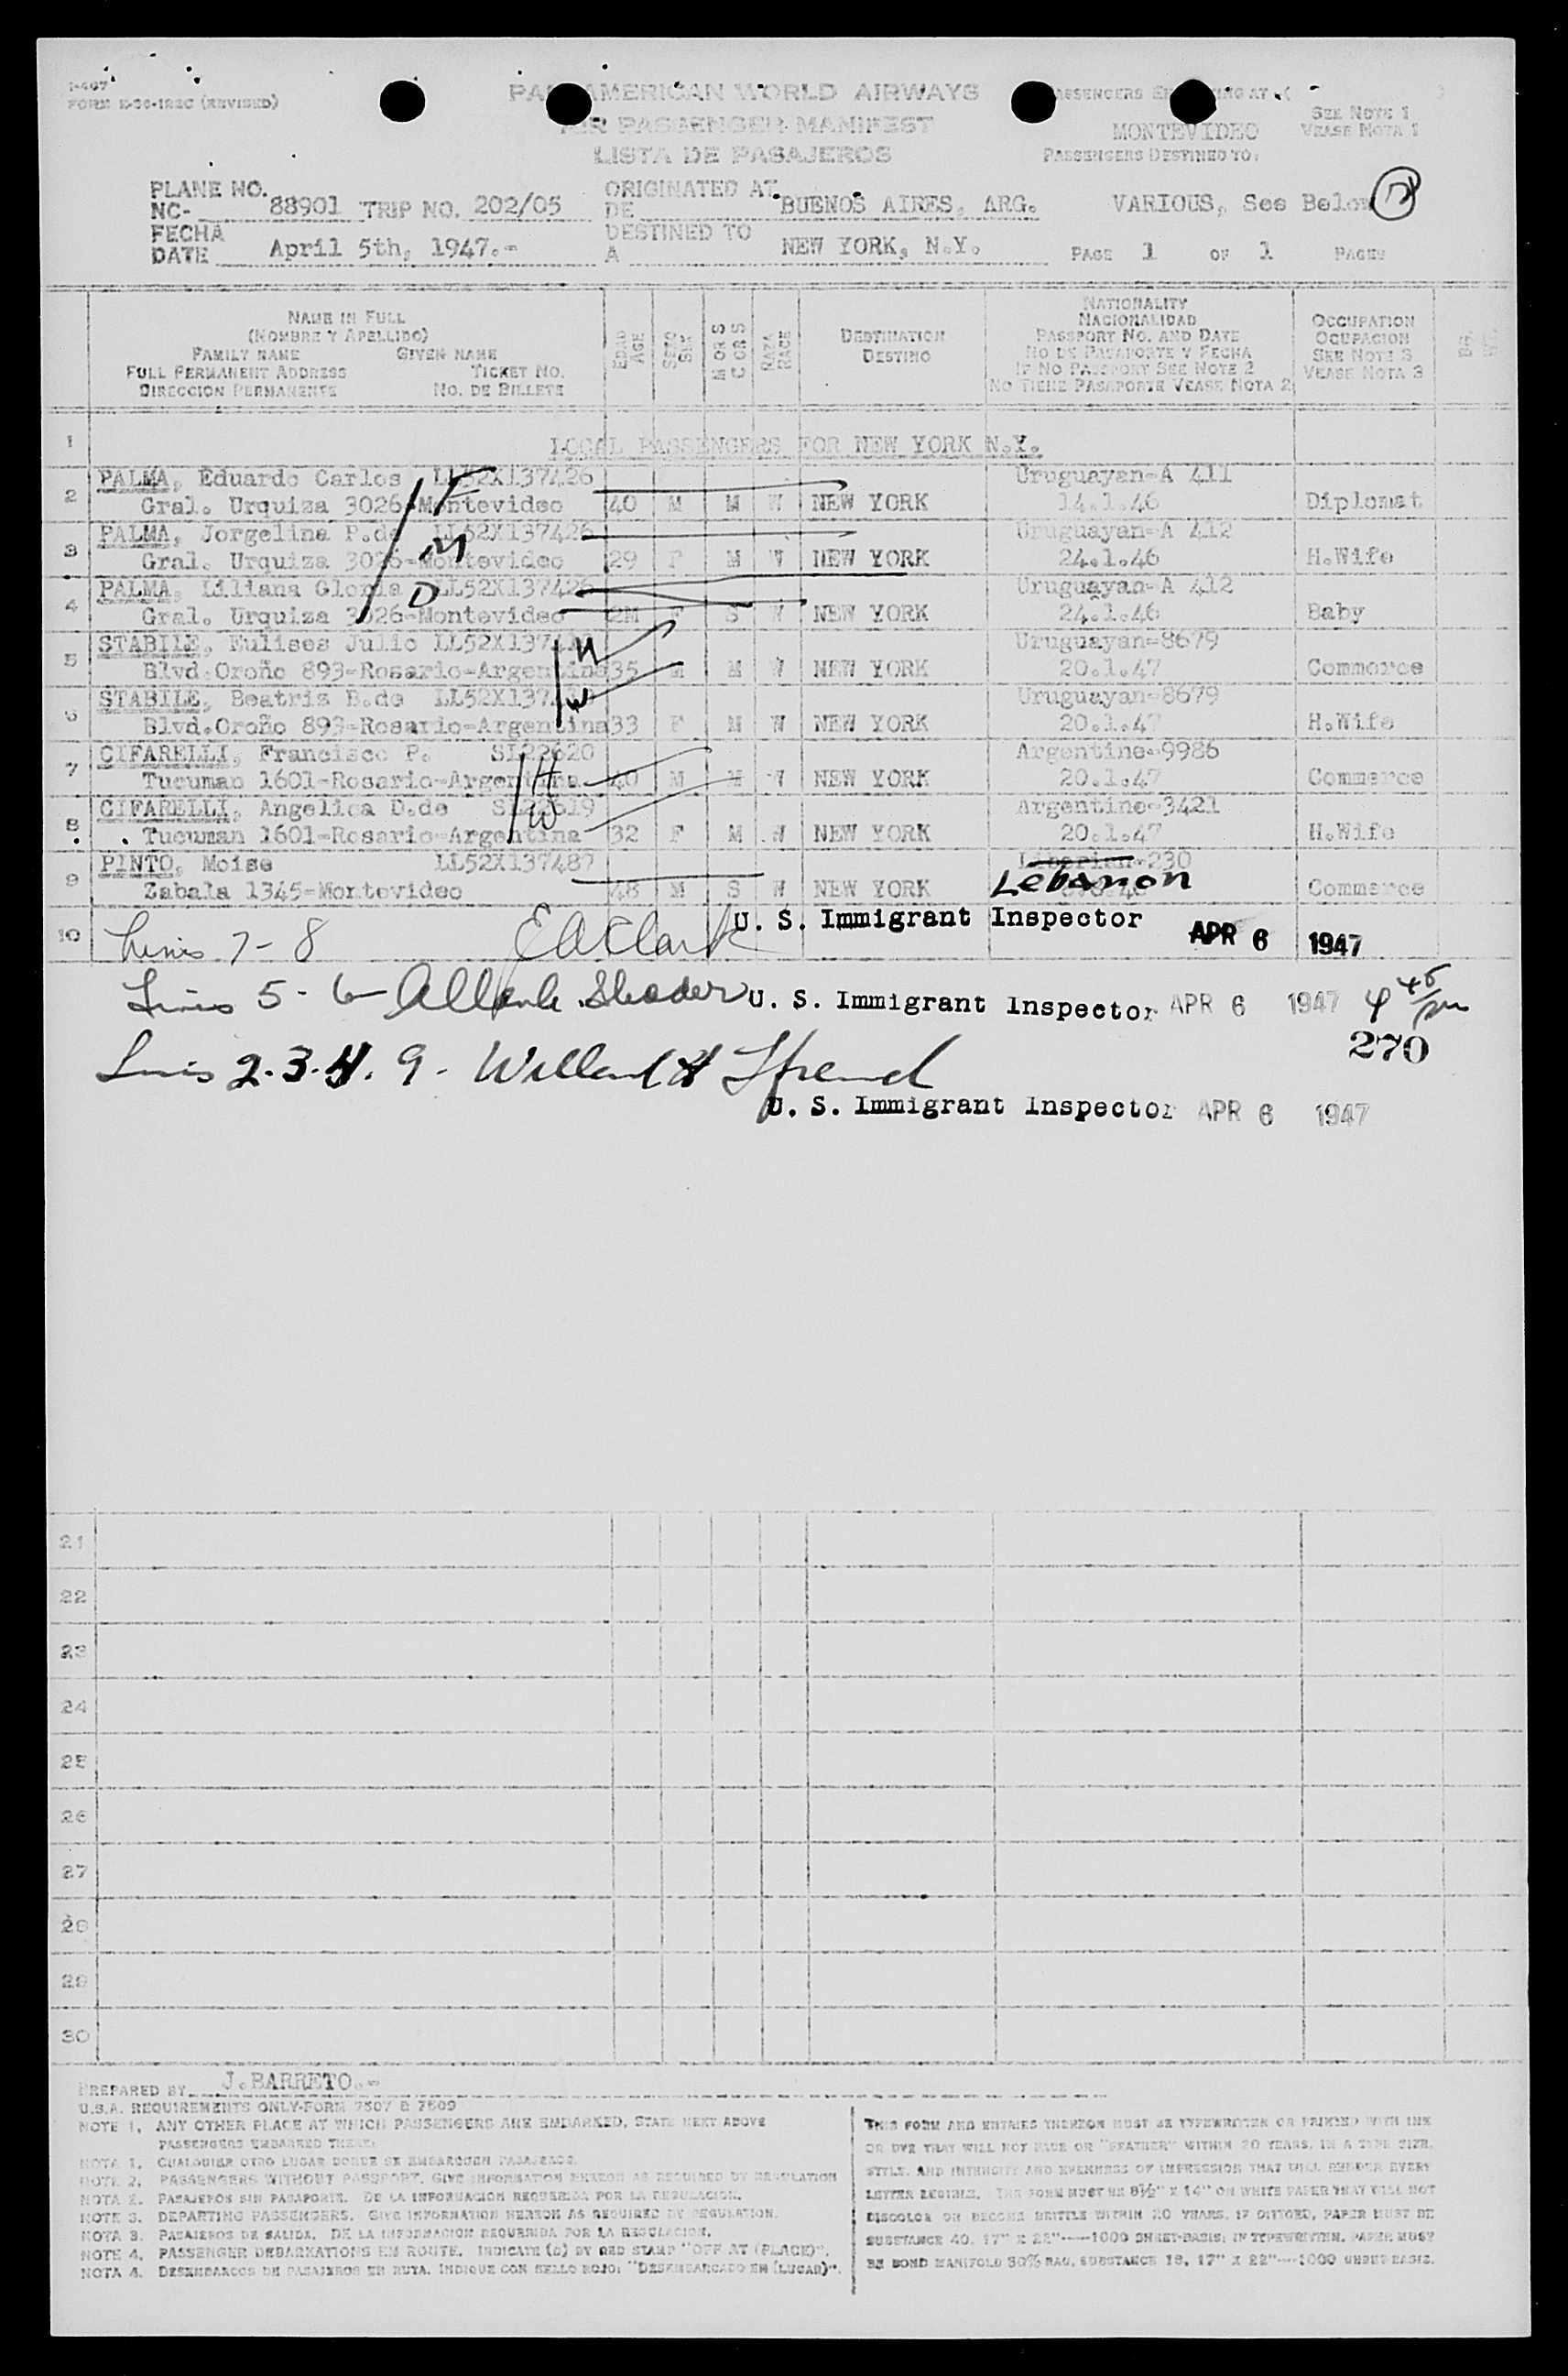 I-407
FORM E-30-182C (REVISED)
PAN AMERICAN WORLD AIRWAYS
AIR PASSENGER MANIFEST
LISTA DE PASAJEROS
SEE NOTE 1
VEASE NOTA 1
MONTEVIDEO
PASSENGERS DESTINED TO:
PLANE NO. NC- 88901 TRIP NO. 202/05 ORIGINATED AT DE BUENOS AIRES, ARG. VARIOUS, See Below
FECHA DATE April 5th, 1947.- DESTINED TO A NEW YORK, N.Y. PAGE 1 OF 1 PAGES
NAME IN FULL
(NOMBRE Y APELLIDO)
FAMILY NAME GIVEN NAME
FULL PERMANENT ADDRESS TICKET NO.
DIRECCION PERMANENTE NO. DE BILLETE
EDAD AGE
SEXO SEX
M OR S C OR S
RAZA RACE
DESTINATION
DESTINO
NATIONALITY
NACIONALIDAD
PASSPORT NO. AND DATE
NO DE PASAPORTE Y FECHA
IF NO PASSPORT SEE NOTE 2
NO TIENE PASAPORTE VEASE NOTA 2
OCCUPATION
OCUPACION
SEE NOTE 3
VEASE NOTA 3
1 LOCAL PASSENGERS FOR NEW YORK N.Y.
2 PALMA, Eduardo Carlos LL52X137426 Uruguayan-A 411
Gral. Urquiza 3026-Montevideo 40 M M W NEW YORK 14.1.46 Diplomat
F
3 PALMA, Jorgelina P.de LL52X137426 Uruguayan-A 412
Gral. Urquiza 3026-Montevideo 29 F M W NEW YORK 24.1.46 H.Wife
M
4 PALMA, Liliana Gloria LL52X137426 Uruguayan-A 412
Gral. Urquiza 3026-Montevideo 2M F S W NEW YORK 24.1.46 Baby
D
5 STABILE, Eulises Julio Uruguayan-8679
Blvd.Oroño 893-Rosario-Argentina 35 M M W NEW YORK 20.1.47 Commerce
H
6 STABILE, Beatriz B.de Uruguayan-8679
Blvd.Oroño 893-Rosario-Argentina 33 F M W NEW YORK 20.1.47 H.Wife
W
7 CIFARELLI, Francisco P. SL22620 Argentine-9986
Tucuman 1601-Rosario-Argentina 40 M M W NEW YORK 20.1.47 Commerce
H
8 CIFARELLI, Angelica D.de SL22619 Argentine-3421
Tucuman 1601-Rosario-Argentina 32 F M W NEW YORK 20.1.47 H.Wife
W
9 PINTO, Moise LL52X137487 Liberian-230
Zabala 1345-Montevideo 48 M S W NEW YORK Lebanon Commerce
10 Lines 7-8 E A Clark U. S. Immigrant Inspector APR 6 1947
Lines 5-6- U. S. Immigrant Inspector APR 6 1947 4 45/pm
270
Lines 2.3.4. 9-
U. S. Immigrant Inspector APR 6 1947
21
22
23
24
25
26
27
28
29
30
PREPARED BY J.BARRETO.-
U.S.A. REQUIREMENTS ONLY-FORM 7507 & 7509
NOTE 1. ANY OTHER PLACE AT WHICH PASSENGERS ARE EMBARKED, STATE NEXT ABOVE
PASSENGERS EMBARKED THERE.
NOTA 1. CUALQUIER OTRO LUGAR DONDE SE EMBARQUEN PASAJEROS.
NOTE 2. PASSENGERS WITHOUT PASSPORT. GIVE INFORMATION HEREON AS REQUIRED BY REGULATION
NOTA 2. PASAJEROS SIN PASAPORTE. DE LA INFORMACION REQUERIDA POR LA REGULACION.
NOTE 3. DEPARTING PASSENGERS. GIVE INFORMATION HEREON AS REQUIRED BY REGULATION.
NOTA 3. PASAJEROS DE SALIDA. DE LA INFORMACION REQUERIDA POR LA REGULACION.
NOTE 4. PASSENGER DEBARKATIONS EN ROUTE. INDICATE (a) BY RED STAMP "OFF AT (PLACE)".
NOTA 4. DESEMBARCOS DE PASAJEROS EN RUTA. INDIQUE CON SELLO ROJO: "DESEMBARCADO EN (LUGAR)".
THIS FORM AND ENTRIES THEREON MUST BE TYPEWRITTEN OR PRINTED WITH INK
OR DYE THAT WILL NOT FADE OR "FEATHER" WITHIN 20 YEARS, IN A TYPE SIZE,
STYLE, AND INTENSITY AND EVENNESS OF IMPRESSION THAT WILL RENDER EVERY
LETTER LEGIBLE. THE FORM MUST BE 8½" X 14" ON WHITE PAPER THAT WILL NOT
DISCOLOR OR BECOME BRITTLE WITHIN 20 YEARS. IF DITTOED, PAPER MUST BE
SUBSTANCE 40, 17" X 22"----1000 SHEET-BASIS; IN TYPEWRITTEN, PAPER MUST
BE BOND MANIFOLD 50% RAG, SUBSTANCE 18, 17" X 22"---1000 SHEET BASIS.